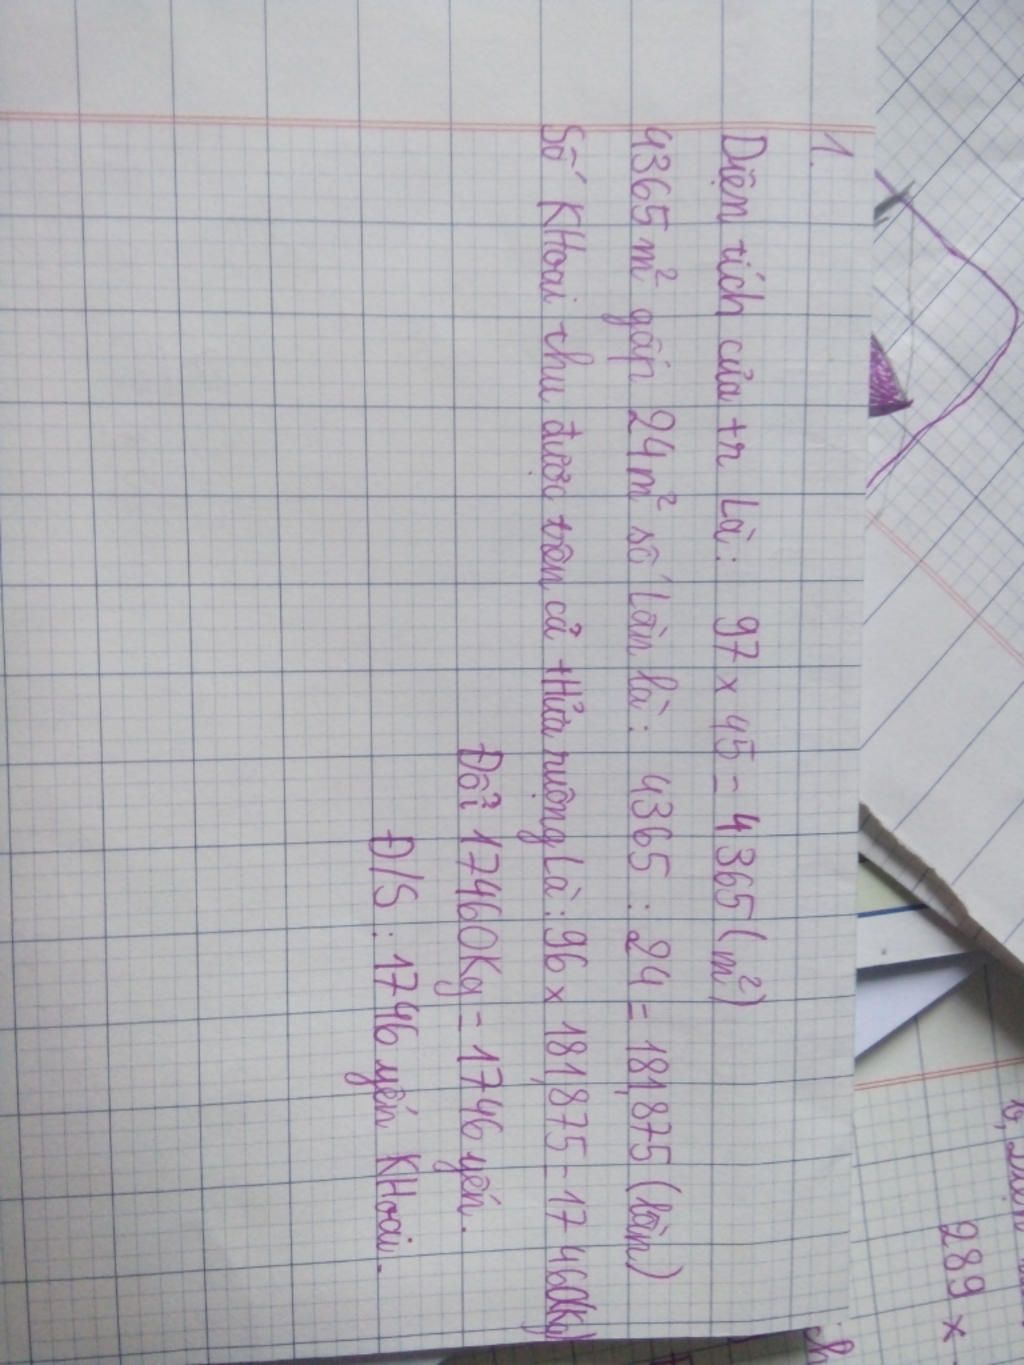 1.
Diện tích của +r là: 97 x 45 = 4365 (m²)
4365 m² gấp 24 m² số lần là: 4365 : 24 = 181,875 (lần)
Số KHoai thu được trên cả +Hửa ruộng là: 96 x 181,875 = 17460(Kg)
Đổi 17460Kg = 1746 yến.
Đ/S : 1746 yến KHoai.
289 x